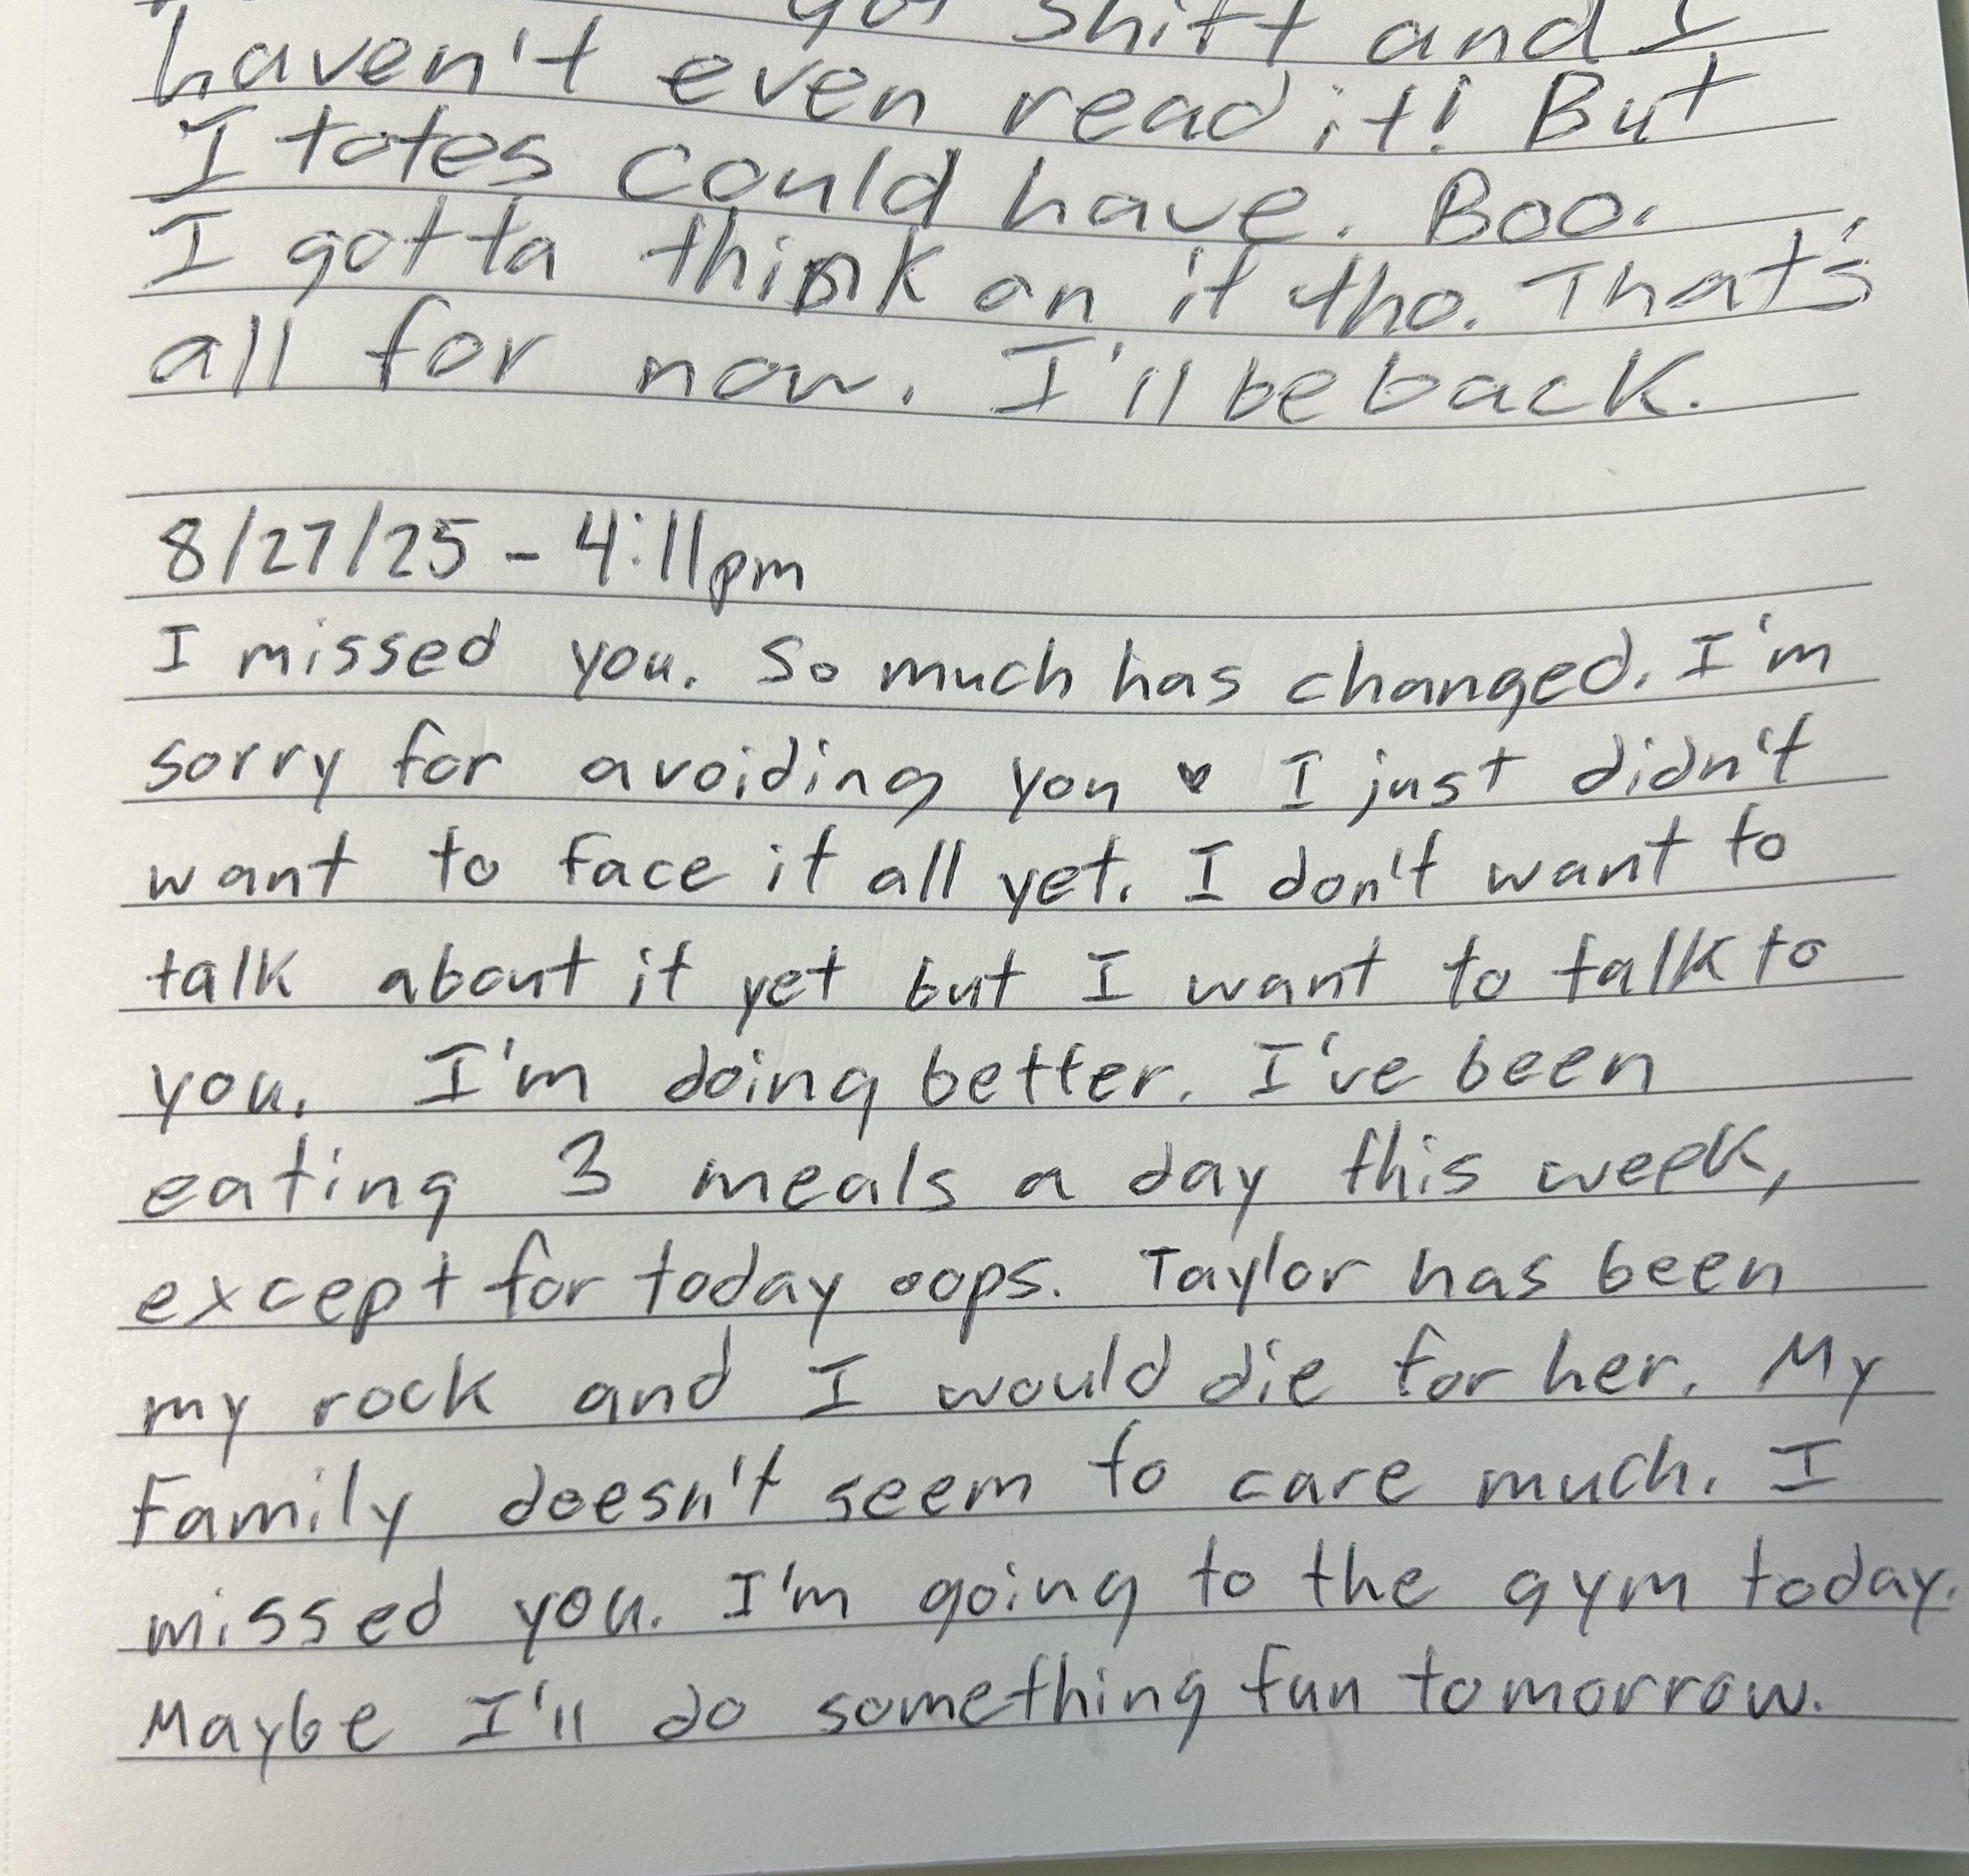 shift and I
haven't even read it! But
I totes could have. Boo.
I gotta think on it tho. That's
all for now. I'll be back.
8/27/25 - 4:11pm
I missed you. So much has changed. I'm
sorry for avoiding you ♥ I just didn't
want to face it all yet. I don't want to
talk about it yet but I want to talk to
you. I'm doing better. I've been
eating 3 meals a day this week,
except for today oops. Taylor has been
my rock and I would die for her. My
Family doesn't seem to care much. I
missed you. I'm going to the gym today.
Maybe I'll do something fun tomorrow.